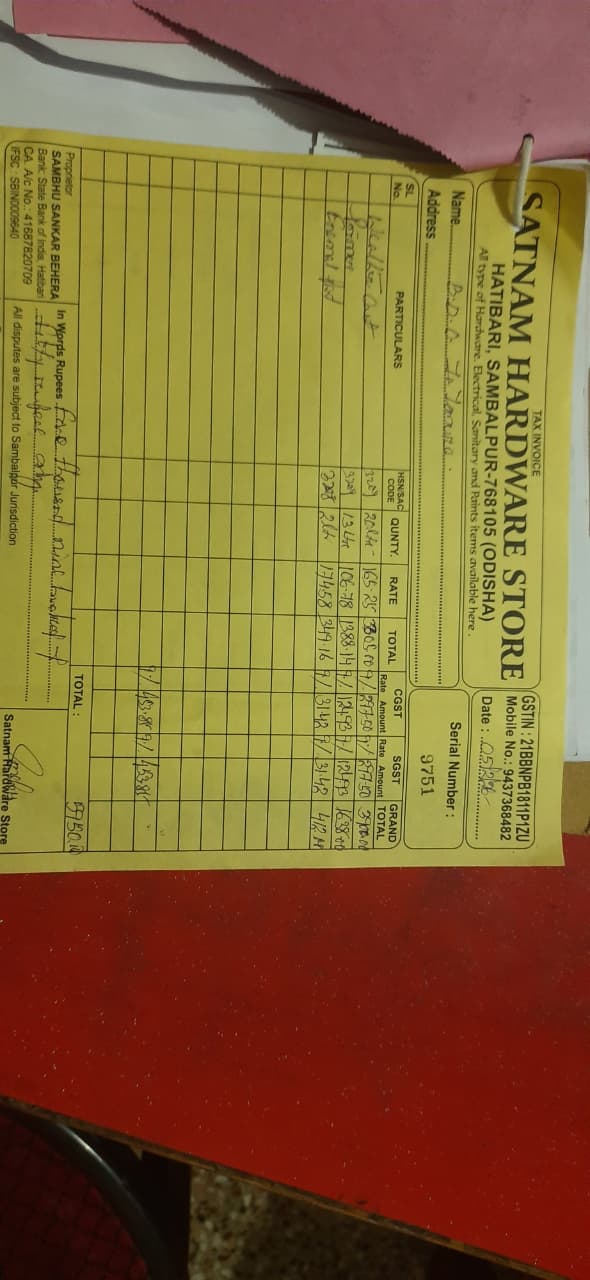 TAX INVOICE
SATNAM HARDWARE STORE
HATIBARI, SAMBALPUR-768105 (ODISHA)
All type of Hardware, Electrical, Sanitary and Paints items available here.
GSTIN : 21BBNPB1811P1ZU
Mobile No.: 9437368482
Date :
Name
Address
Serial Number :
9751
SL No. PARTICULARS HSN/SAC CODE QUNTY. RATE TOTAL CGST Rate Amount SGST Rate Amount GRAND TOTAL
Weather Coat 3209 20Ltr 165.25 3305.00 9/ 297.50 9/ 297.50
3209 13Ltr 106.78 1388.14 9/ 124.93 9/ 124.93 1638.00
3208 2Lt 174.58 349.16 9/ 31.42 9/ 31.42
9/ 453.85 9/ 453.85
TOTAL :
Proprietor
SAMBHU SANKAR BEHERA
Bank: State Bank of India, Hatibari
CA. A/c No.: 41687820709
IFSC : SBIN0009640
In Words Rupees Five thousand
All disputes are subject to Sambalpur Jurisdiction
Satnam Hardware Store